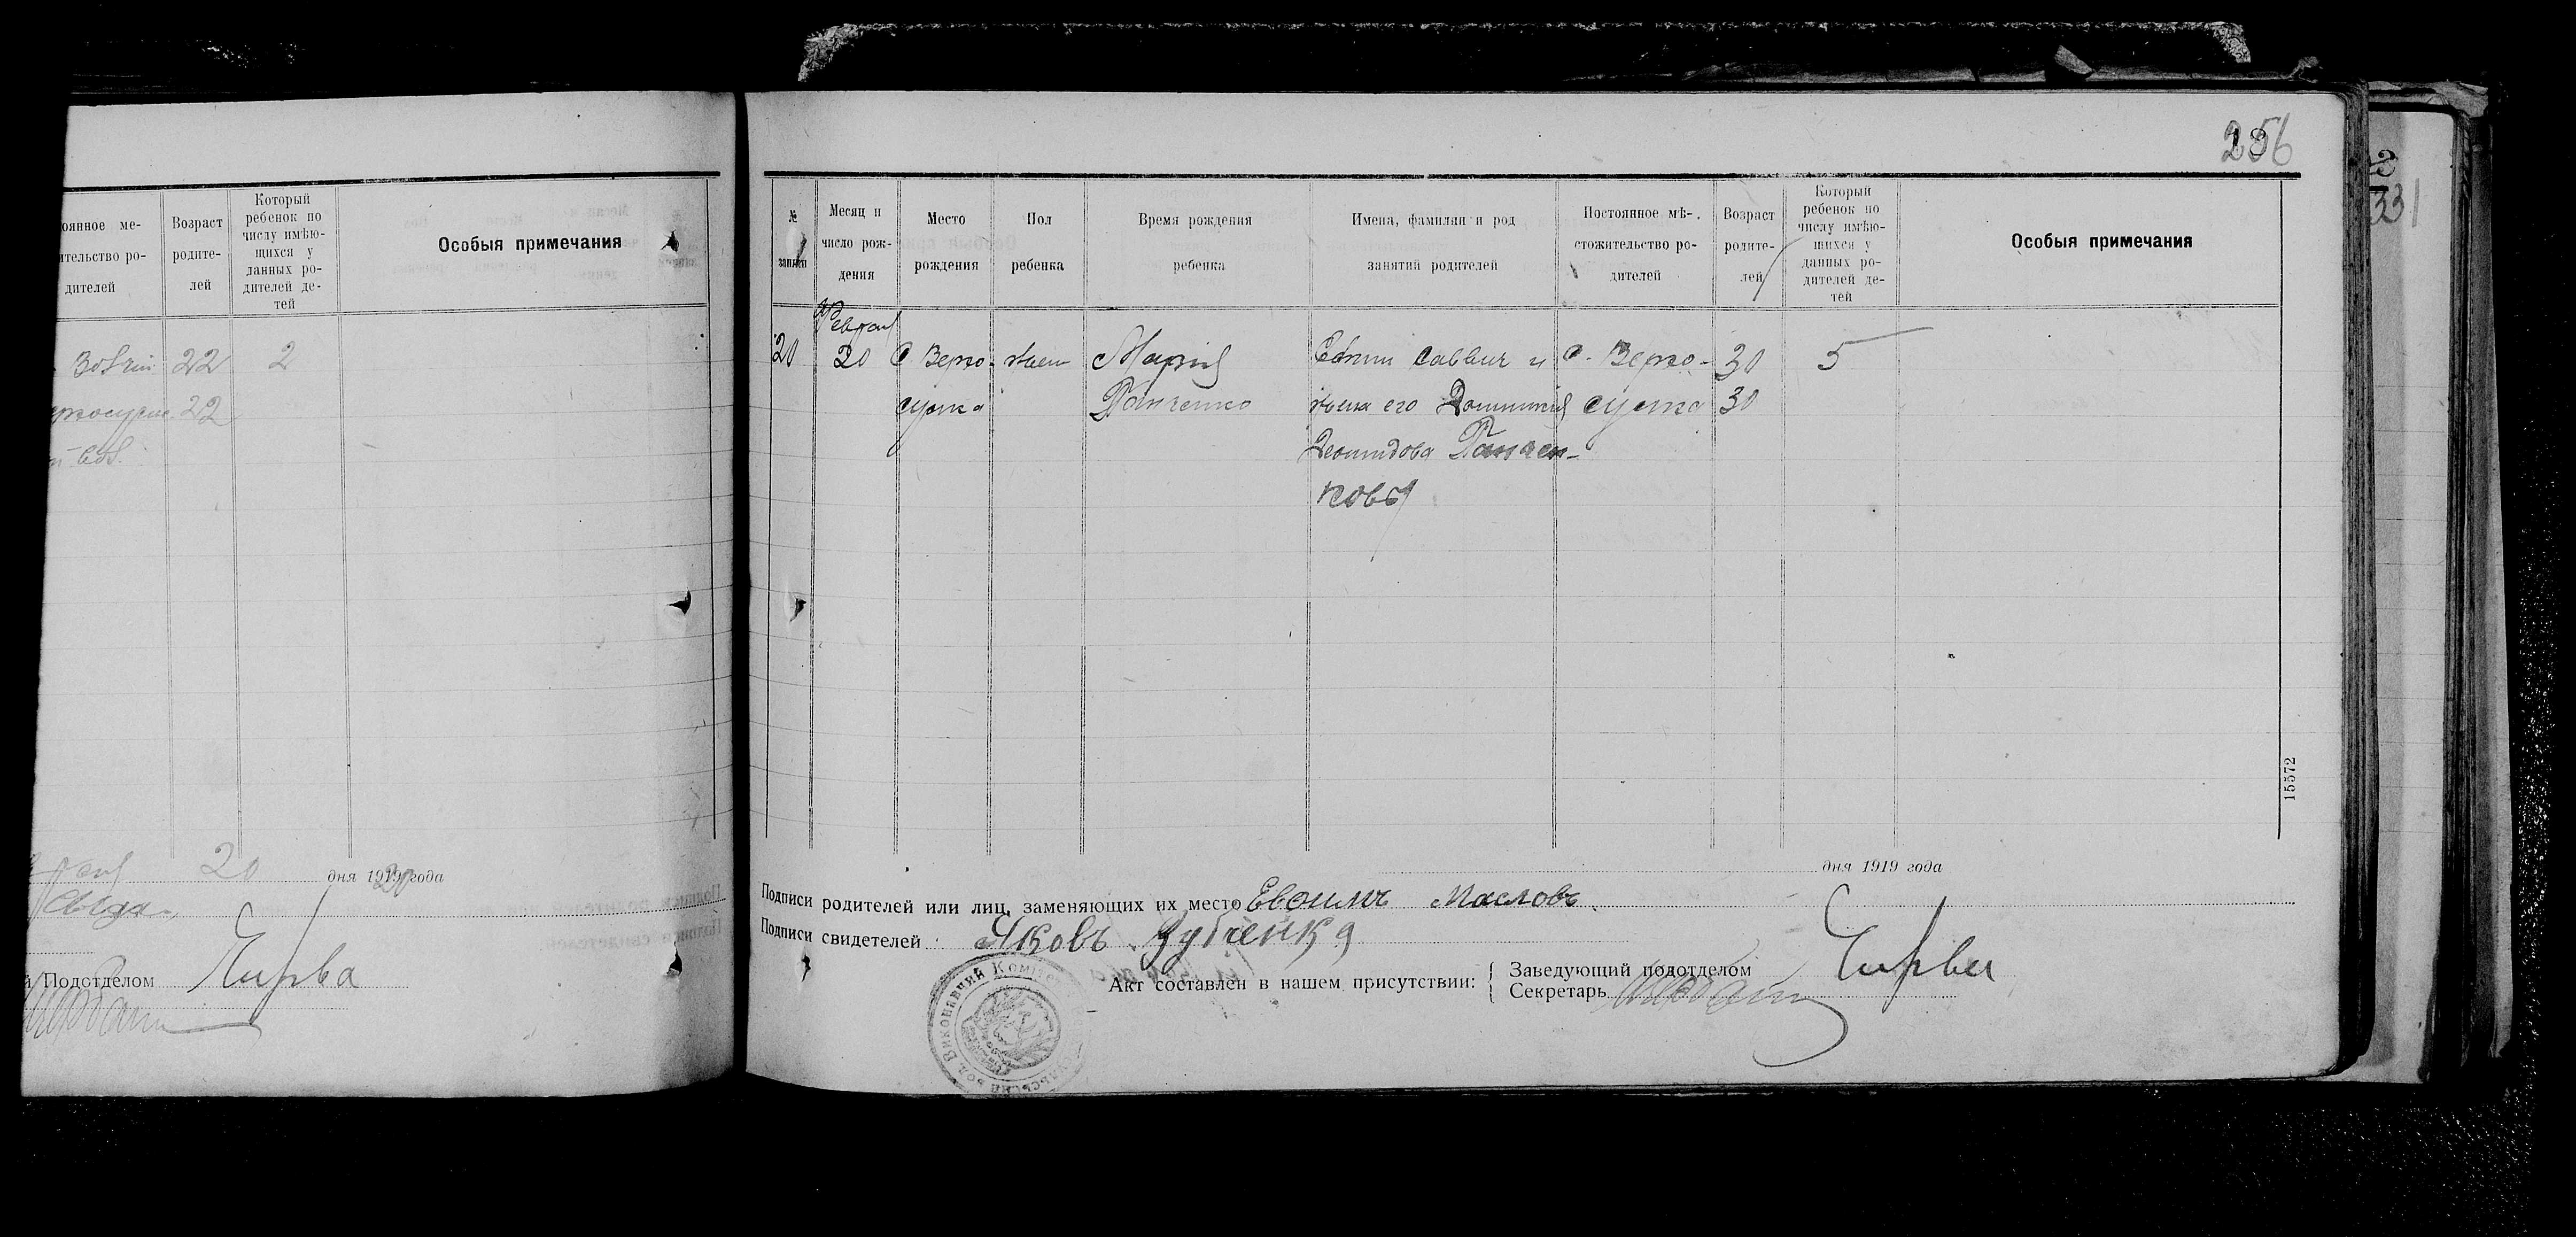 оянное ме-
ительство ро-
дителей
Возраст
родите-
лей
Который
ребенок по
числу имѣю-
щихся у
данных ро-
дителей де-
тей
Особыя примечания
22
2
22
20
дня 1919 года
20
Подотделом
Чирва
256
№
записи
Месяц и
число рож-
дения
Место
рождения
Пол
ребенка
Время рождения
ребенка
Имена, фамилии и род
занятий родителей
Постоянное мѣ-
стожительство ро-
дителей
Возраст
родите-
лей
Который
ребенок по
числу имѣю-
щихся у
данных ро-
дителей де-
тей
Особыя примечания
Феврал
20
20
с. Верхо-
сулка
жен
Мария
Панченко
Ефим Саввич и
жена его Домникия
Леонидова Панчен-
ковы
с. Верхо-
сулка
30
30
5
15572
дня 1919 года
Подписи родителей или лиц, заменяющих их место Евоимъ Масловъ
Подписи свидетелей Яковъ Зубченка
Акт составлен в нашем присутствии:
Заведующий подотделом Чирва
Секретарь
Виконавчий Комітет
331